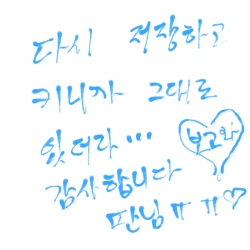 다시 저장하고
키니까 그대로
있더라...
보고와
감사합니다
판님ㅠㅠ♡